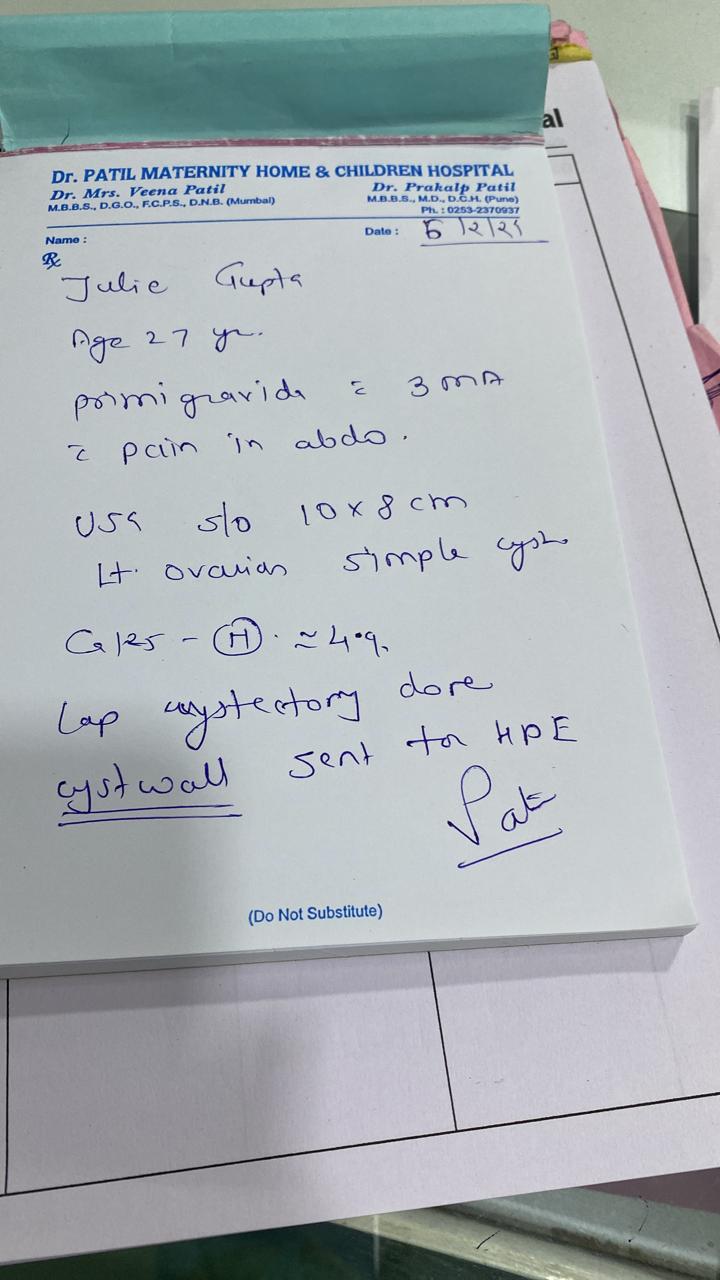 al
Dr. PATIL MATERNITY HOME & CHILDREN HOSPITAL
Dr. Mrs. Veena Patil Dr. Prakalp Patil
M.B.B.S., D.G.O., F.C.P.S., D.N.B. (Mumbai) M.B.B.S., M.D., D.C.H. (Pune)
Ph. : 0253-2370937
Name : Date : 5/2/25
Rx
Julie Gupta
Age 27 yr.
primigravida c 3 MA
c pain in abdo.
USG s/o 10 x 8 cm
Lt. ovarian simple cyst
Ca 125 - (H) ≈ 49.
Lap cystectomy done
cyst wall sent for HPE
(Do Not Substitute)